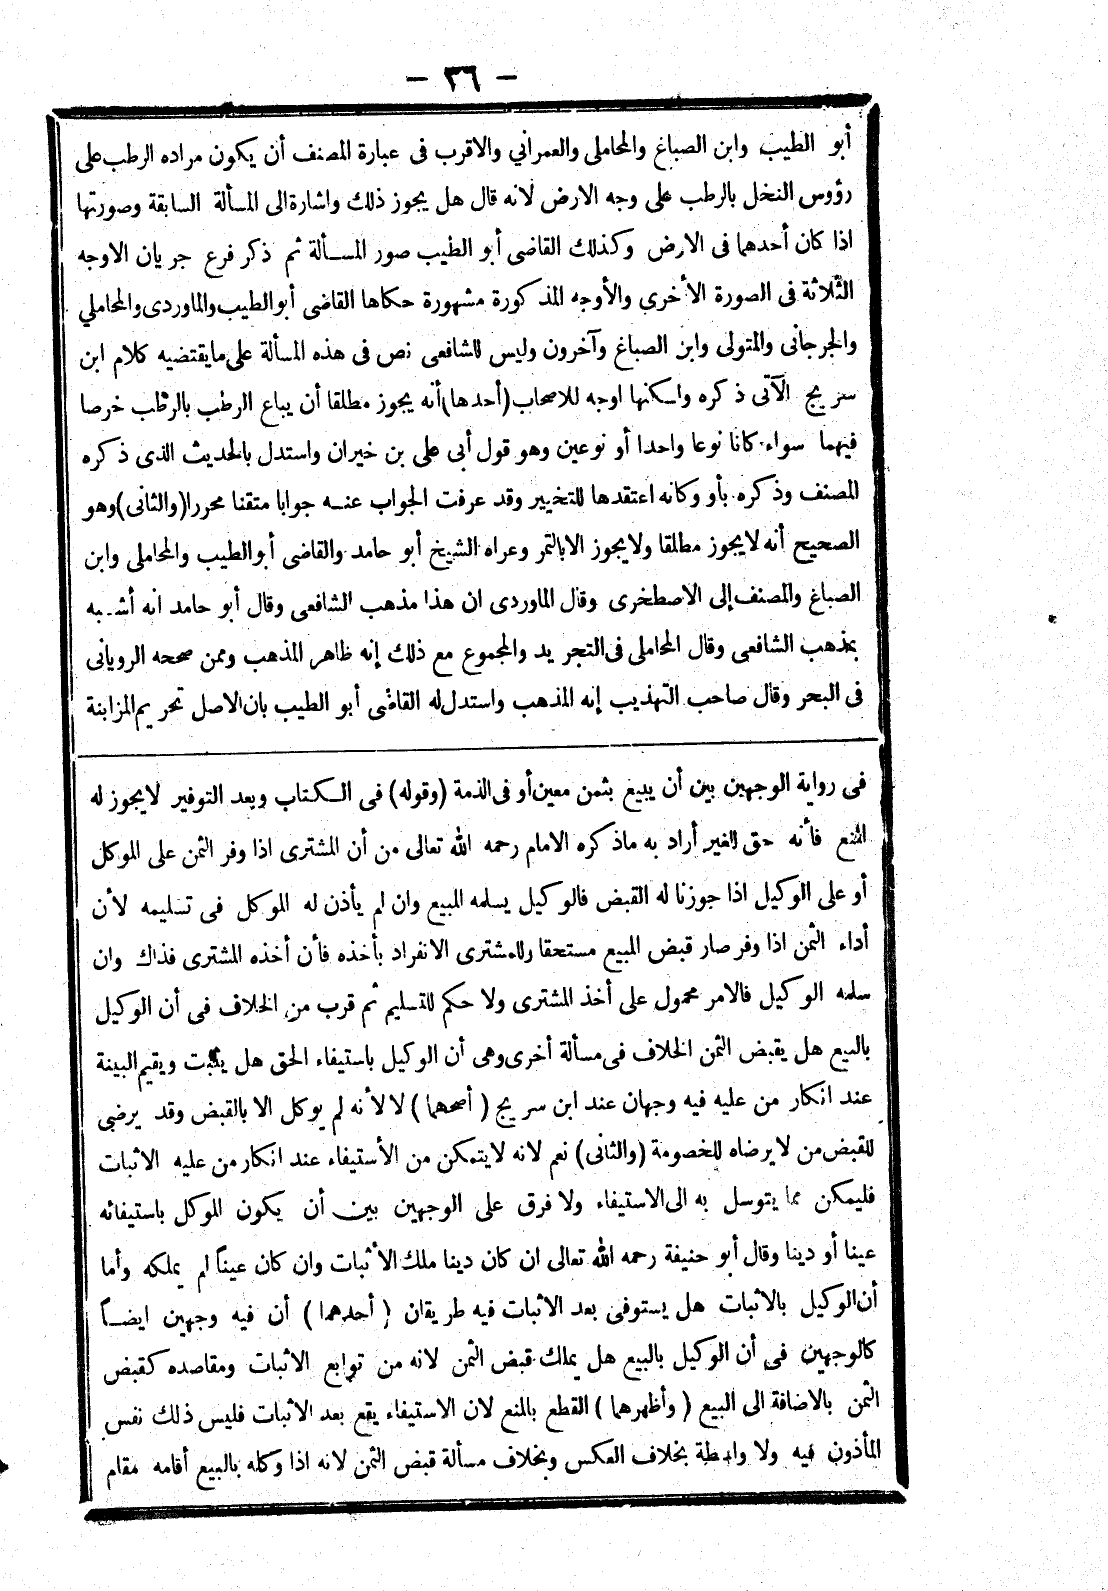 — ٣٦ —
أبو الطيب وابن الصباغ والمحاملى والعمراني والاقرب فى عبارة المصنف أن يكون مراده الرطب على
رؤوس النخل بالرطب على وجه الارض لانه قال هل يجوز ذلك واشارة الى المسألة السابقة وصورتها
اذا كان أحدهما فى الارض وكذلك القاضى أبو الطيب صور المسألة ثم ذكر فرع جريان الاوجه
الثلاثة فى الصورة الأخرى والأوجه المذكورة مشهورة حكاها القاضى أبو الطيب والماوردى والمحاملي
والجرجانى والمتولى وابن الصباغ وآخرون وليس للشافعى نص فى هذه المسألة على مايقتضيه كلام ابن
سريج الآتى ذكره واسكنها اوجه للاصحاب (أحدها) أنه يجوز مطلقا أن يباع الرطب بالرطب خرصا
فيهما سواء كانا نوعا واحدا أو نوعين وهو قول أبى على بن خيران واستدل بالحديث الذى ذكره
المصنف وذكره بأو وكانه اعتقدها للتخيير وقد عرفت الجواب عنه جوابا متقنا محررا (والثانى) وهو
الصحيح أنه لا يجوز مطلقا ولا يجوز الا بالتمر وعراه الشيخ أبو حامد والقاضى أبو الطيب والمحاملى وابن
الصباغ والمصنف إلى الاصطخرى وقال الماوردى ان هذا مذهب الشافعى وقال أبو حامد انه أشبه
بمذهب الشافعى وقال المحاملى فى التجريد والمجموع مع ذلك إنه ظاهر المذهب وممن صححه الرويانى
فى البحر وقال صاحب التهذيب إنه المذهب واستدل له القاضى أبو الطيب بان الاصل تحريم المزابنة
فى رواية الوجهين بين أن يبيع بثمن معين أو فى الذمة (وقوله) فى الكتاب وبعد التوفير لا يجوز له
المنع فأنه حق الغير أراد به ماذكره الامام رحمه الله تعالى من أن المشترى اذا وفر الثمن على الموكل
أو على الوكيل اذا جوزنا له القبض فالوكيل يسلمه المبيع وان لم يأذن له الموكل فى تسليمه لأن
أداء الثمن اذا وفر صار قبض المبيع مستحقا وللمشترى الانفراد بأخذه فأن أخذه المشترى فذاك وان
سلمه الوكيل فالامر محمول على أخذ المشترى ولا حكم للتسليم ثم قرب من الخلاف فى أن الوكيل
بالبيع هل يقبض الثمن الخلاف فى مسألة أخرى وهى أن الوكيل باستيفاء الحق هل يثبت ويقيم البينة
عند انكار من عليه فيه وجهان عند ابن سريج (أصحهما) لا لأنه لم يوكل الا بالقبض وقد يرضى
للقبض من لا يرضاه للخصومة (والثانى) نعم لانه لا يتمكن من الأستيفاء عند انكار من عليه الاثبات
فليمكن مما يتوسل به الى الاستيفاء ولا فرق على الوجهين بين أن يكون الموكل باستيفائه
عينا أو دينا وقال أبو حنيفة رحمه الله تعالى ان كان دينا ملك الأثبات وان كان عيناً لم يملكه وأما
أن الوكيل بالاثبات هل يستوفى بعد الاثبات فيه طريقان (أحدهما) أن فيه وجهين ايضـاً
كالوجهين فى أن الوكيل بالبيع هل يملك قبض الثمن لانه من توابع الاثبات ومقاصده كقبض
الثمن بالاضافة الى البيع (وأظهرهما) القطع بالمنع لان الاستيفاء يقع بعد الاثبات فليس ذلك نفس
المأذون فيه ولا واسطة بخلاف العكس وبخلاف مسألة قبض الثمن لانه اذا وكله بالبيع أقامه مقام